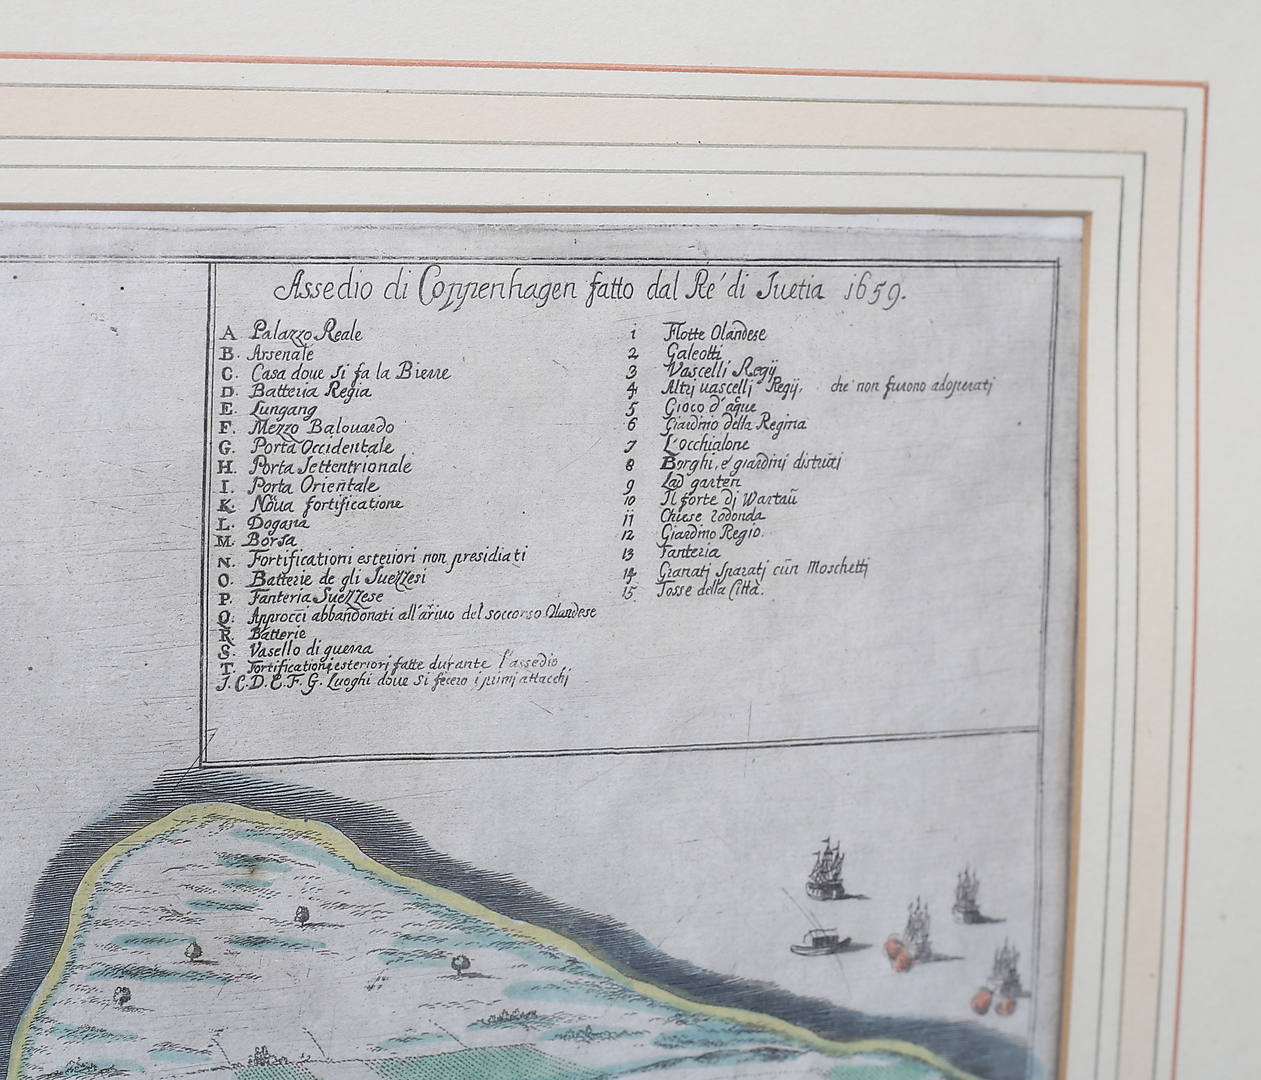 Assedio di Coppenhagen fatto dal Re di Suetia 1659.
A Palazzo Reale
B. Arsenale
C. Casa doue si fa la Biere
D. Batteria Regia
E. Lungang
F. Mezzo Balouardo
G. Porta Occidentale
H. Porta Settentrionale
I. Porta Orientale
K. Noua fortificatione
L. Dogana
M. Borsa
N. Fortificationi esteriori non presidiati
O. Batterie de gli Suezzesi
P. Fanteria Suezzese
Q. Approcci abbandonati all'ariuo del soccorso Olandese
R Batterie
S. Vasello di guerra
T. Fortificationi esteriori fatte durante l'assedio
J. C. D. E. F. G. Luoghi doue si fecero i primj attacchj
1 Flotte Olandese
2 Galeotti
3 Vascelli Regij
4 Altrj uascelli Regij, che non furono adoperatj
5 Gioco d'aque
6 Giardino della Regina
7 L'occhialone
8 Borghi, e giardinj distruti
9 Lad garten
10 Il forte dj Wartau
11 Chiese rodonda
12 Giardino Regio.
13 Fanteria
14 Granatj sparatj cun Moschettj
15 Fosse della Città.